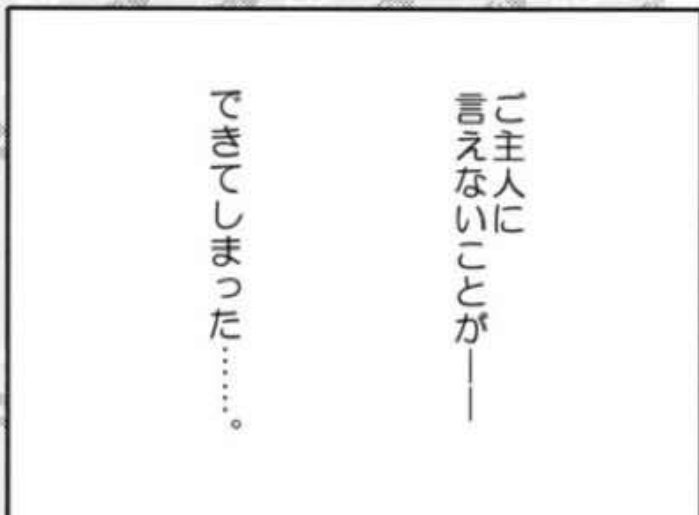 ご主人に
言えないことが――
できてしまった……。